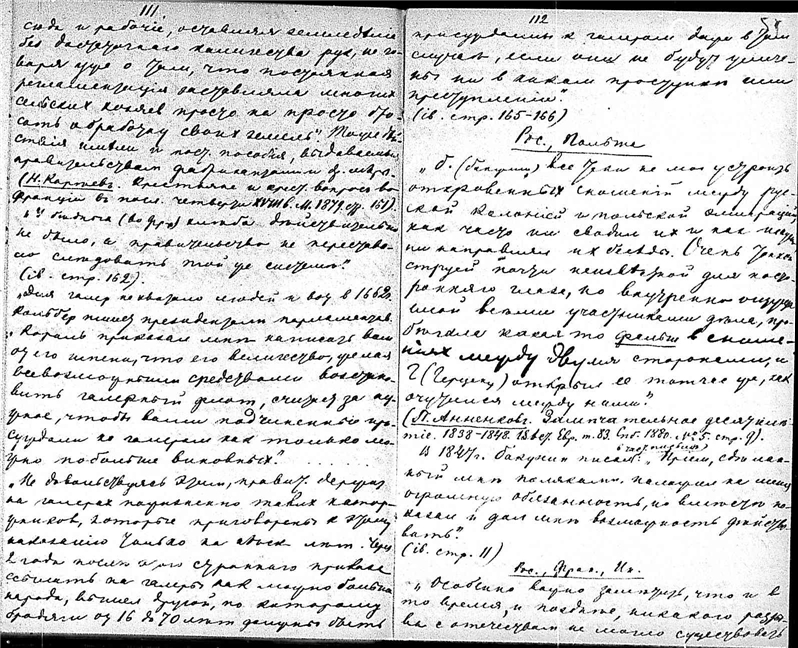 111
сюда и рабочіе, оставляя земледѣліе
без достаточнаго количества рук, не го-
воря уже о том, что постоянная
регламентація заставляла многих
сельских хозяев просто на просто бро-
сать обработку своих земель".
правительством фабрикантам и
(Н. Карѣев. Крестьяне и крест. вопрос во
Франціи в посл. четверти XVIII в. М. 1879, стр. 161).
не было, а правительство не перестава-
ло слѣдовать той же системѣ."
(ib. стр. 162).
"Для галер не хватало людей и вот в 1662 г.
Кольбер пишет президентам парламентов:
"Король приказал мнѣ написать вам
от его имени, что его величество, желая
всевозможными средствами возстано-
вить галерный флот, считает за ну-
жное, чтобы вами подчиненные при-
суждали к галерам как только мо-
жно побольше виновных".
"Не довольствуясь этим, правит. держит
на галерах пожизненно таких катор-
жников, которые приговорены к этому
наказанію только на нѣск. лѣт. Через
2 года послѣ этого страннаго приказа
ссылать на галеры как можно больше
народа, вышел другой, по которому
бродяги от 16 до 70 лѣт должны быть
112
присуждаемы к галерам даже в том
случаѣ, если они не будут уличе-
ны ни в каком проступкѣ или
преступленіи".
(ib. стр. 165-166)
Рос., Польша
"Б. (Бакунин) все таки не мог устроить
откровенных сношений между рус-
ской колоніей и польской эмиграціей,
как часто ни сводил их и как
ни направлял их бесѣды. Очень тонкой
струей почти неизвѣстной для посто-
ронняго глаза, но внутренно ощуща-
емой всѣми участниками дѣла, про-
бѣгала какая то фальшь в сноше-
ніях между двумя сторонами, и
Г (Герцен) открыл ее тотчас же, как
очутился между нами."
(П. Анненков. Замѣчательное десятилѣ-
тіе. 1838-1848. Вѣст. Евр. т. 83. Спб. 1880. № 5. стр. 9).
В 1847 г. Бакунин писал: "Пріем, сдѣлан-
ный мнѣ поляками, наложил на меня
огромную обязанность, но вмѣстѣ по-
казал и дал мнѣ возможность дѣйство-
вать".
(ib. стр. 11)
Рос., Фран., Ин.
"Особенно важно замѣтить, что и в
то время, и позднѣе, никакого разры-
ва с отечеством не могло существовать